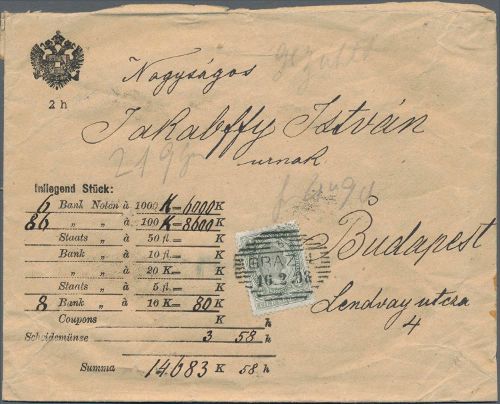 2 h
Nagyságos
Jakabffy István
urnak
Budapest
Lendvay utcza
4
Inliegend Stück:
6 Bank Noten à 1000 K = 6000 K
86 " " à 100 K = 8600 K
Staats " à 50 fl.= K
Bank " à 10 fl.= K
" " à 20 K= K
Staats " à 5 fl.= K
8 Bank " à 10 K= 80 K
Coupons K h
Scheidemünze 3 58 h
Summa 14683 K 58 h
GRAZ
16.2.08